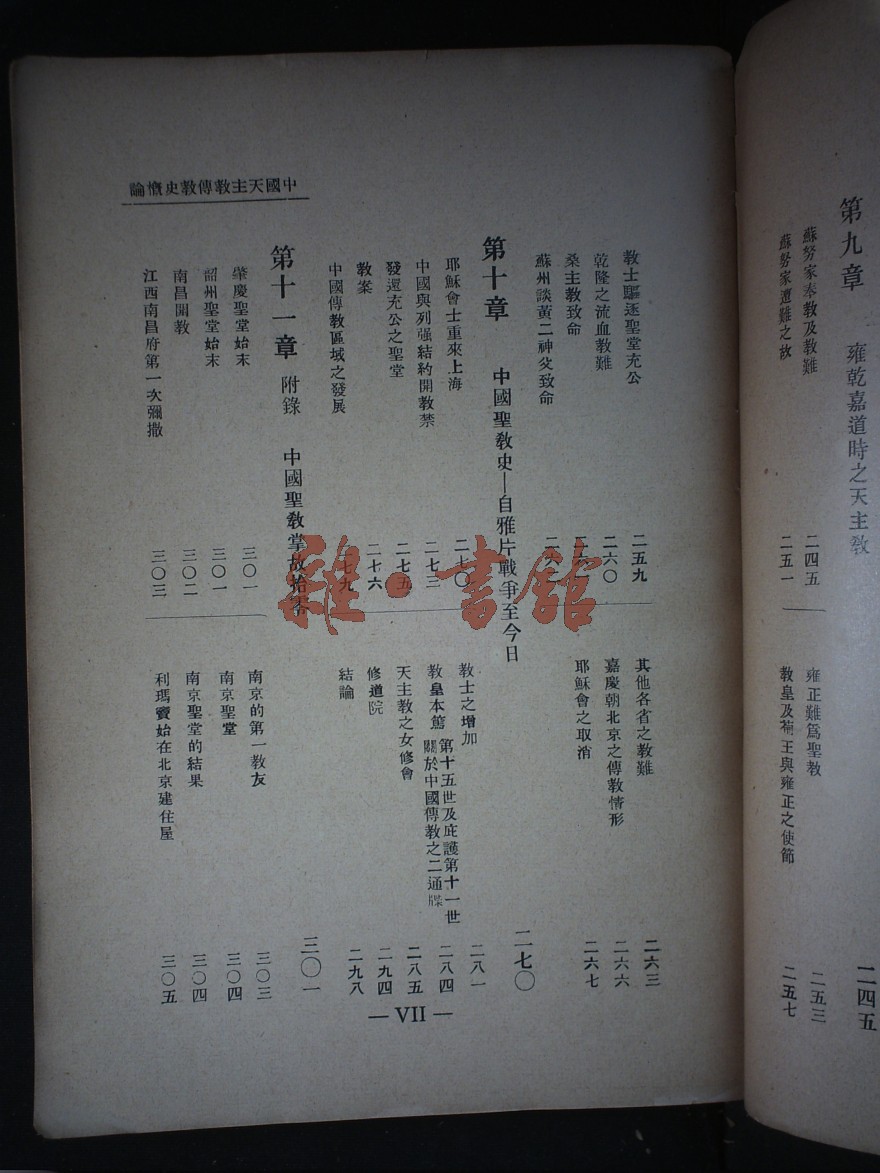 第九章 雍乾嘉道時之天主敎 二四五
蘇努家奉教及教難 二四五
蘇努家遭難之故 二五一
雍正難爲聖教 二五三
教皇及葡王與雍正之使節 二五七
中國天主教傳教史槪論
教士驅逐聖堂充公 二五九
乾隆之流血教難 二六〇
桑主教致命
蘇州談黃二神父致命
其他各省之教難 二六三
嘉慶朝北京之傳教情形 二六六
耶穌會之取消 二六七
第十章 中國聖敎史—自雅片戰爭至今日 二七〇
耶穌會士重來上海 二七〇
中國與列强結約開教禁 二七三
發還充公之聖堂 二七五
教案 二七六
中國傳教區域之發展 二七九
教士之增加 二八一
教皇本篤第十五世及庇護第十一世關於中國傳教之二通牒 二八四
天主教之女修會 二八五
修道院 二九四
結論 二九八
第十一章 附錄 中國聖敎掌故拾零 三〇一
肇慶聖堂始末 三〇一
韶州聖堂始末 三〇一
南昌開教 三〇二
江西南昌府第一次彌撒 三〇三
南京的第一教友 三〇三
南京聖堂 三〇四
南京聖堂的結果 三〇四
利瑪竇始在北京建住屋 三〇五
— VII —
雜·書館